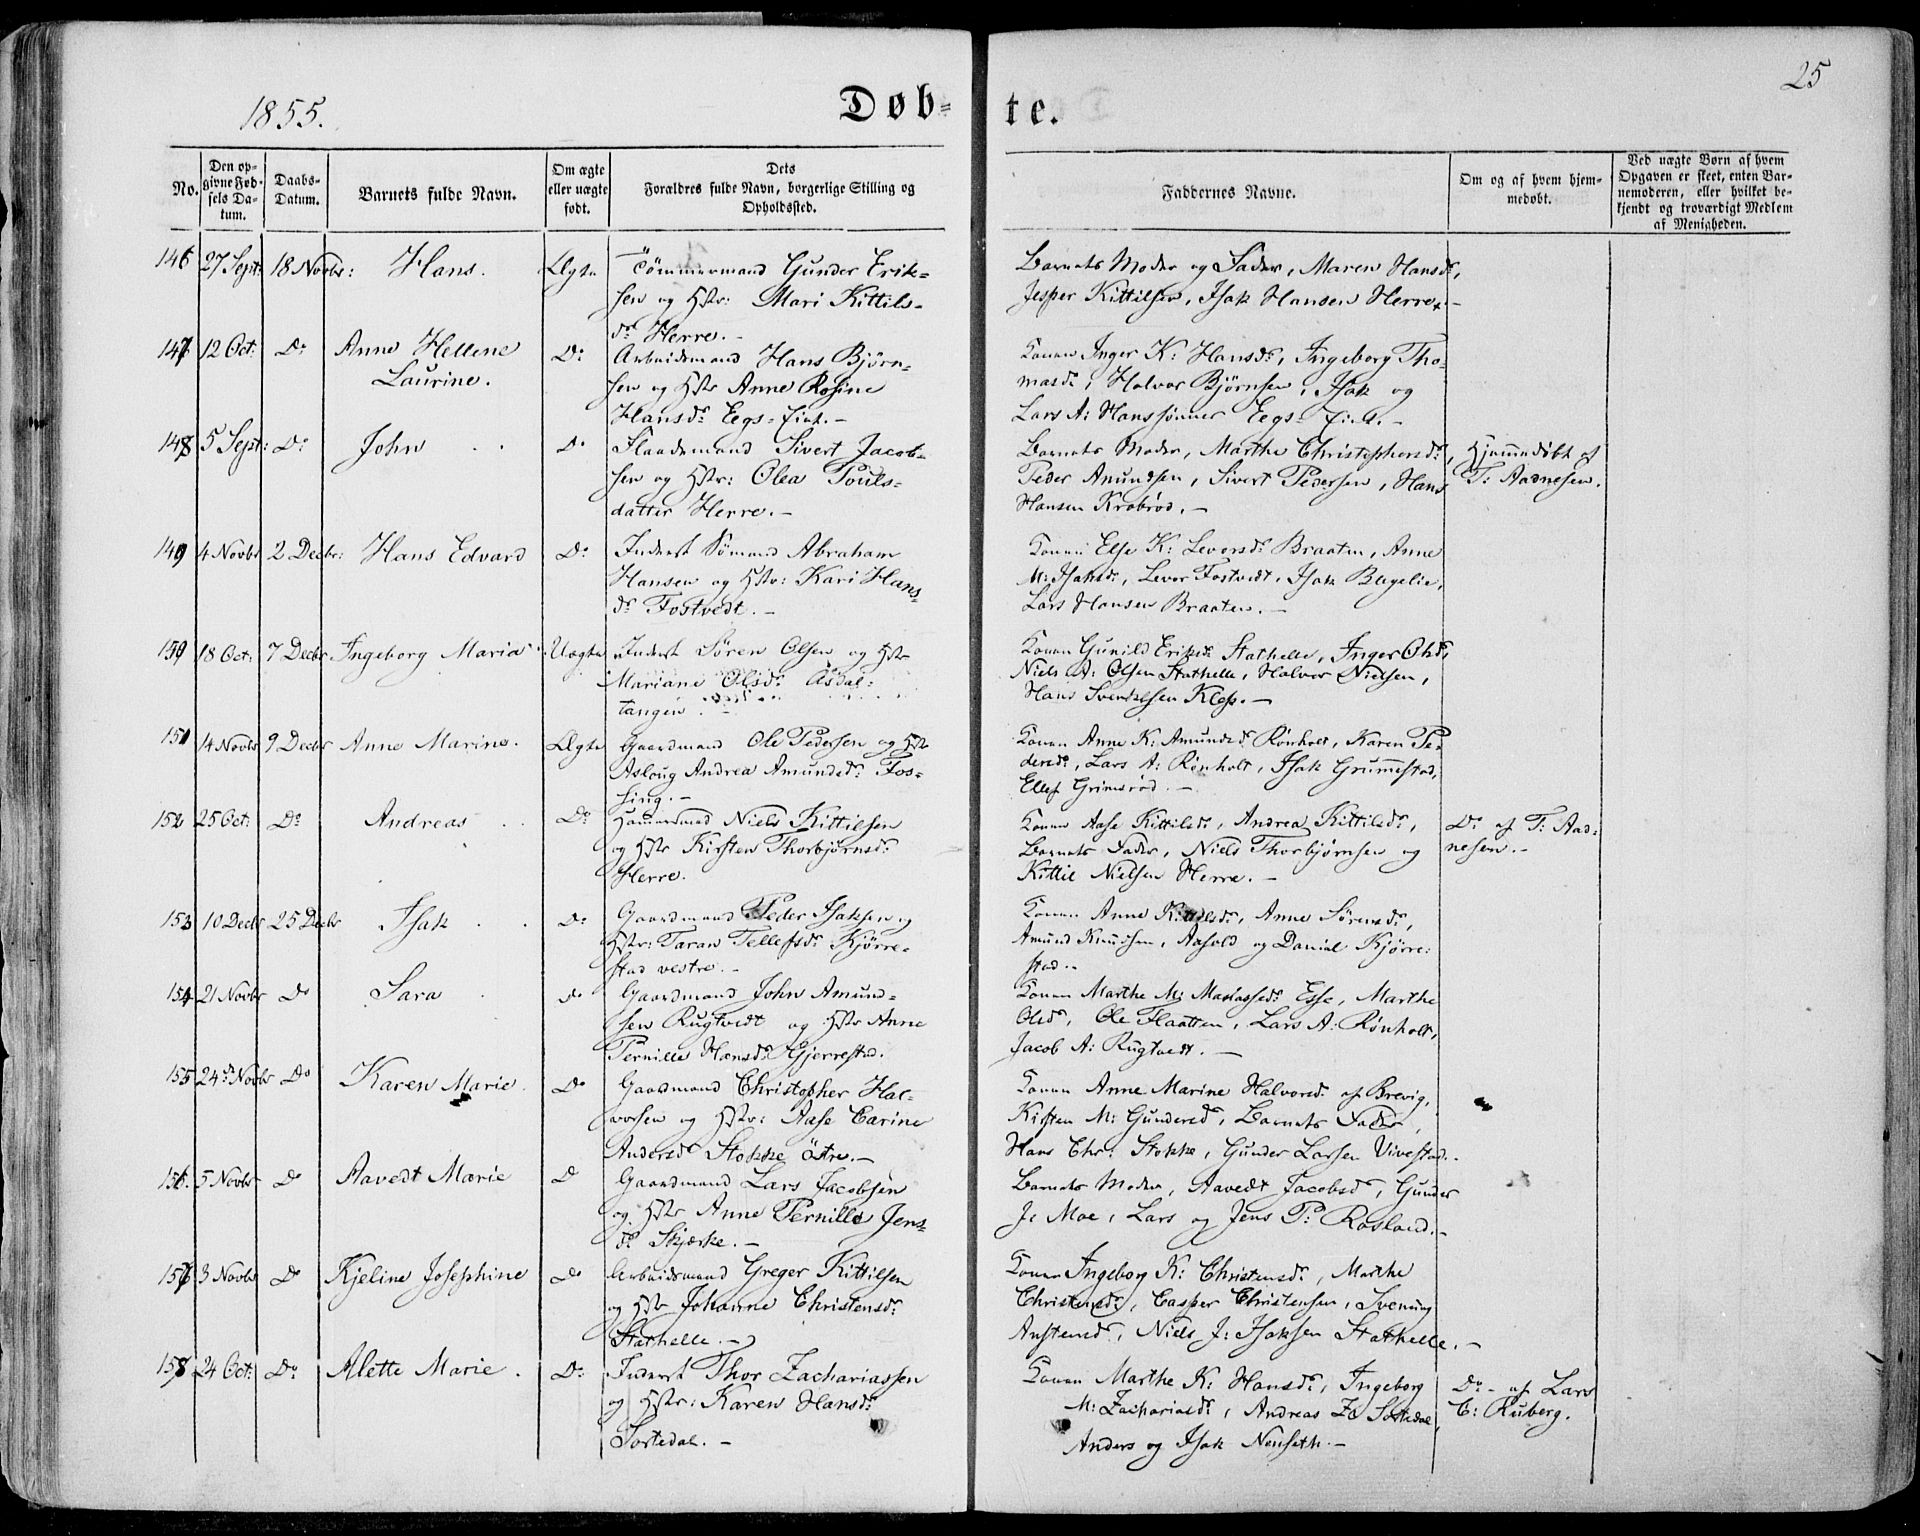 25
1855.
Døb-
te.
No.
Den op-
givne Fød-
sels Da-
tum.
Daabs-
Datum.
Barnets fulde Navn.
Om ægte
eller uægte
født.
Dets
Forældres fulde Navn, borgerlige Stilling og
Opholdssted.
Faddernes Navne.
Om og af hvem hjem-
medøbt.
Ved uægte Børn af hvem
Opgaven er skeet, enten Bar-
nemoderen, eller hvilket be-
kjendt og troværdigt Medlem
af Menigheden.
146 27 Sept: 18 Novbr: Hans. Ægte Tømmermand Gunder Erik-
sen og Hstr: Mari Kittils-
dr Herre.-
Barnets Moder og Fader, Maren Hansdr,
Jesper Kittilsen, Isak Hansen Herre.-
147 12 Oct: Do Anne Hellene Do Arbeidsmand Hans Bjørn-
Laurine. sen og Hstr Anne Rosine
Hansdr Eegs-Eiet.-
Konen Inger K: Hansdr, Ingeborg Tho-
masdr, Halvor Bjørnsen, Isak og
Lars A: Hanssønner Eegs-Eiet.-
148 5 Sept: Do John Do Flaadsmand Sivert Jacob-
sen og Hstr: Olea Pouls-
datter Herre.-
Barnets Moder, Marthe Christophersdr,
Peder Amundsen, Sivert Pedersen, Hans
Hansen Krabrød.-
Hjemmedøbt af
T: Aadnesen.
149 4 Novbr 2 Decbr: Hans Edvard Do Inderst Sømand Abraham
Hansen og Hstr: Kari Hans-
dr Fostvedt.-
Konen Else K: Leversdr Braaten, Anne
M: Isaksdr, Lever Fostvedt, Isak Bøgelie,
Lars Hansen Braaten.-
150 18 Oct: 7 Decbr Ingeborg Maria Uægte Inderst Sören Olsen og Hstr
Mariane Olsdr Åsdal-
tangen.-
Konen Gunild Eriksdr Stathelle, Inger Olsdr,
Niels A: Olsen Stathelle, Halvor Nielsen,
Hans Svenkesen Klep.-
151 14 Novbr 9 Decbr Anne Marine. Ægte Gaardmand Ole Pedersen og Hstr
Aslaug Andrea Amundsdr Fos-
sing.-
Konen Anne K: Amundsdr Rønholt, Karen Pe-
dersdr, Lars A: Rønholt, Isak Grummestad,
Ellef Grimsrød.-
152 25 Oct: Do Andreas Do Hammersmed Niels Kittilsen
og Hstr Kirsten Thorbjørnsdr
Herre.
Konen Aase Kittilsdr, Andrea Kittilsdr,
Barnets Fader, Niels Thorbjørnsen og
Kittil Nielsen Herre.-
Do af T: Aad-
nesen.-
153 10 Decbr 25 Decbr Isak Do Gaardmand Peder Isaksen og
Hstr: Taran Tellefsdr Kjörre-
stad vestre.-
Konen Anne Kittilsdr, Anne Sørensdr,
Amund Knudsen, Aasold og Daniel Kjørre-
stad.-
154 21 Novbr Do Sara Do Gaardmand John Amund-
sen Rugtvedt og Hstr Anne
Pernille Hansdr Gjerrestad.
Konen Marthe M: Mathiasdr Esse, Marthe
Olsdr, Ole Flaatten, Lars A: Rønholt,
Jacob A: Rugtvedt.-
155 24de Novbr Do Karen Marie. Do Gaardmand Christopher Hal-
vorsen og Hstr: Aase Carine
Andersdr Stokke østre.-
Konen Anne Marine Halvorsdr af Brevig,
Kirsten M: Gundersdr, Barnets Fader,
Hans Chr: Stokke, Gunder Larsen Vivestad.-
156. 5 Novbr Do Aavedt Marie Do Gaardmand Lars Jacobsen
og Hstr Anne Pernille Jens-
dr Skjerke.-
Barnets Moder, Aavedt Jacobsdr, Gunder
J: Moe, Lars og Jens P: Rosland.-
157 3 Novbr Do Kjeline Josephine Do Arbeidsmand Greger Kittilsen
og Hstr Johanne Christensdr
Stathelle.-
Konen Ingeborg K: Christensdr, Marthe
Christensdr, Casper Christensen, Svenung
Anstensdr, Niels J: Isaksen Stathelle.-
158 24 Oct: Do Alette Marie. Do Inderst Thor Zachariassen
og Hstr: Karen Hansdr
Sortedal.-
Konen Marthe K: Hansdr, Ingeborg
M: Zachariasdr, Andreas Z: Sortedal,
Anders og Isak Nenseth.-
Do- af Lars
C: Ruberg.